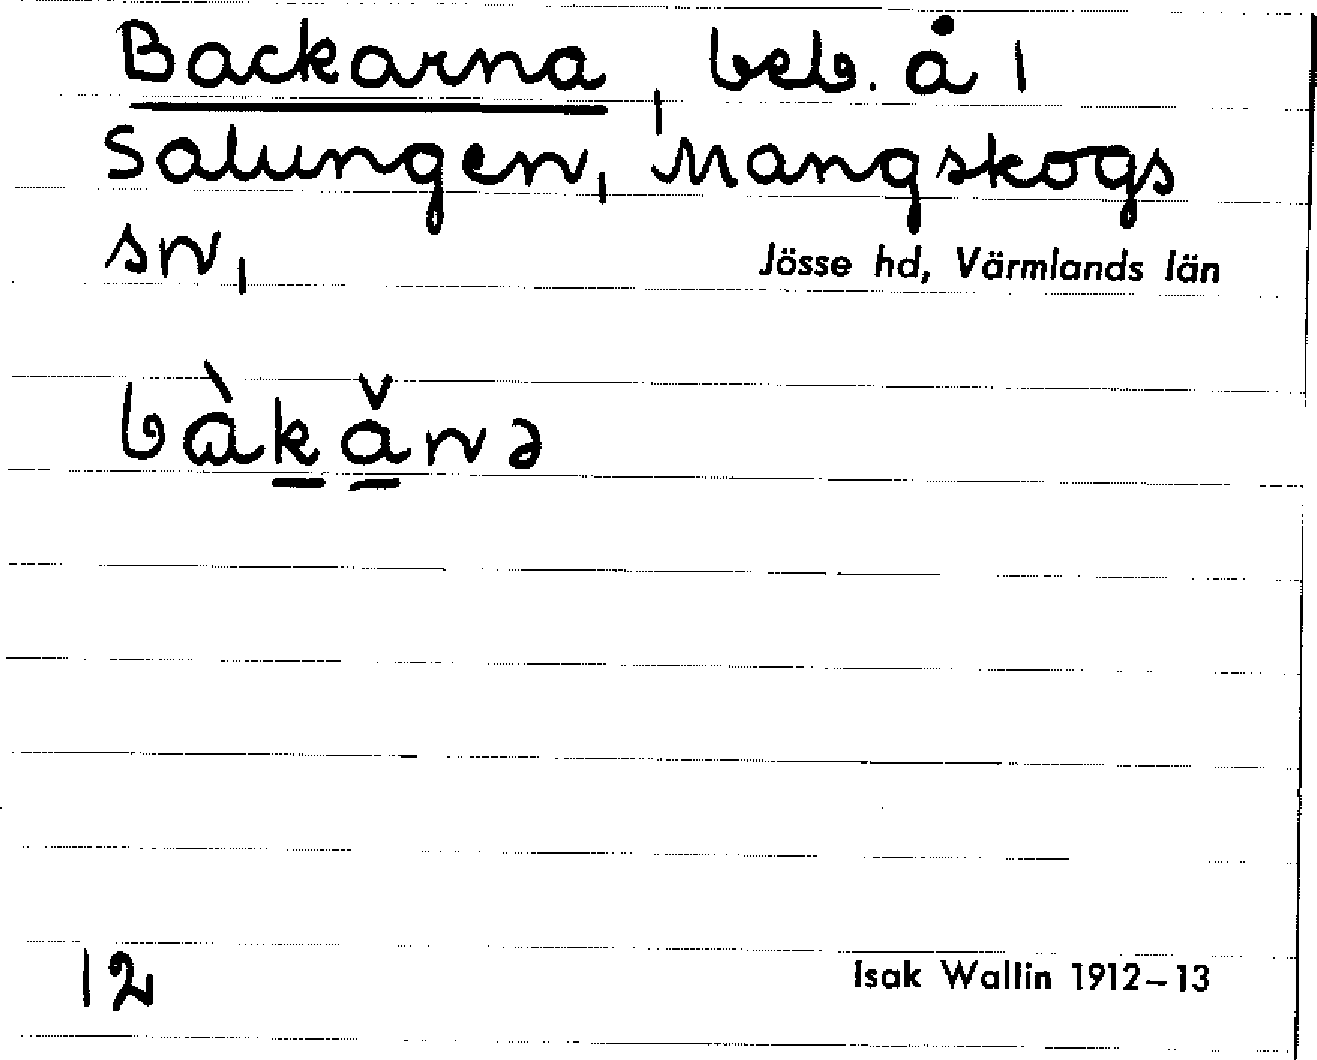 Backarna, beb. å 1
Salungen, Mangskogs
sn,
Jösse hd, Värmlands län
bàkănə
12
Isak Wallin 1912–13